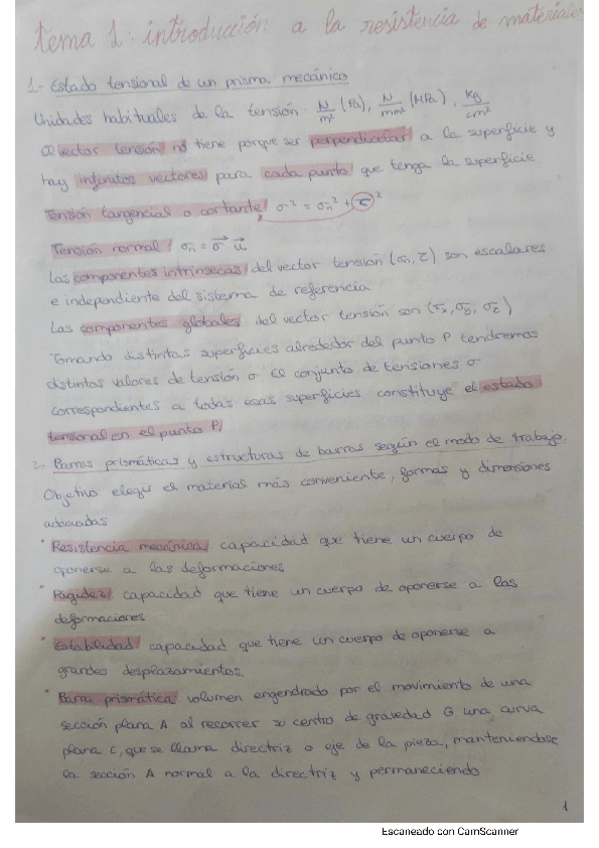 tema 1: introducción a la resistencia de materiales
1.- Estado tensional de un prisma mecánico
Unidades habituales de la tensión: N/m² (Pa), N/mm² (MPa), Kg/cm²
El vector tensión no tiene porque ser perpendicular a la superficie y
hay infinitos vectores para cada punto que tenga la superficie
Tensión tangencial o cortante σ² = σn² + τ²
Tensión normal σn = σ⃗ u⃗
Las componentes intrínsecas del vector tensión (σn, τ) son escalares
e independiente del sistema de referencia
Las componentes globales del vector tensión son (σx, σy, σz)
Tomando distintas superficies alrededor del punto P tendremos
distintos valores de tensión σ. El conjunto de tensiones σ
correspondientes a todas esas superficies constituye el estado
tensional en el punto P.
2.- Barras prismáticas y estructuras de barras según el modo de trabajo.
Objetivo elegir el material más conveniente, formas y dimensiones
adecuadas
• Resistencia mecánica: capacidad que tiene un cuerpo de
oponerse a las deformaciones
• Rigidez: capacidad que tiene un cuerpo de oponerse a las
deformaciones
• Estabilidad: capacidad que tiene un cuerpo de oponerse a
grandes desplazamientos.
• Barra prismática: volumen engendrado por el movimiento de una
sección plana A al recorrer su centro de gravedad G una curva
plana C, que se llama directriz o eje de la pieza, manteniendose
la sección A normal a la directriz y permaneciendo
1
Escaneado con CamScanner